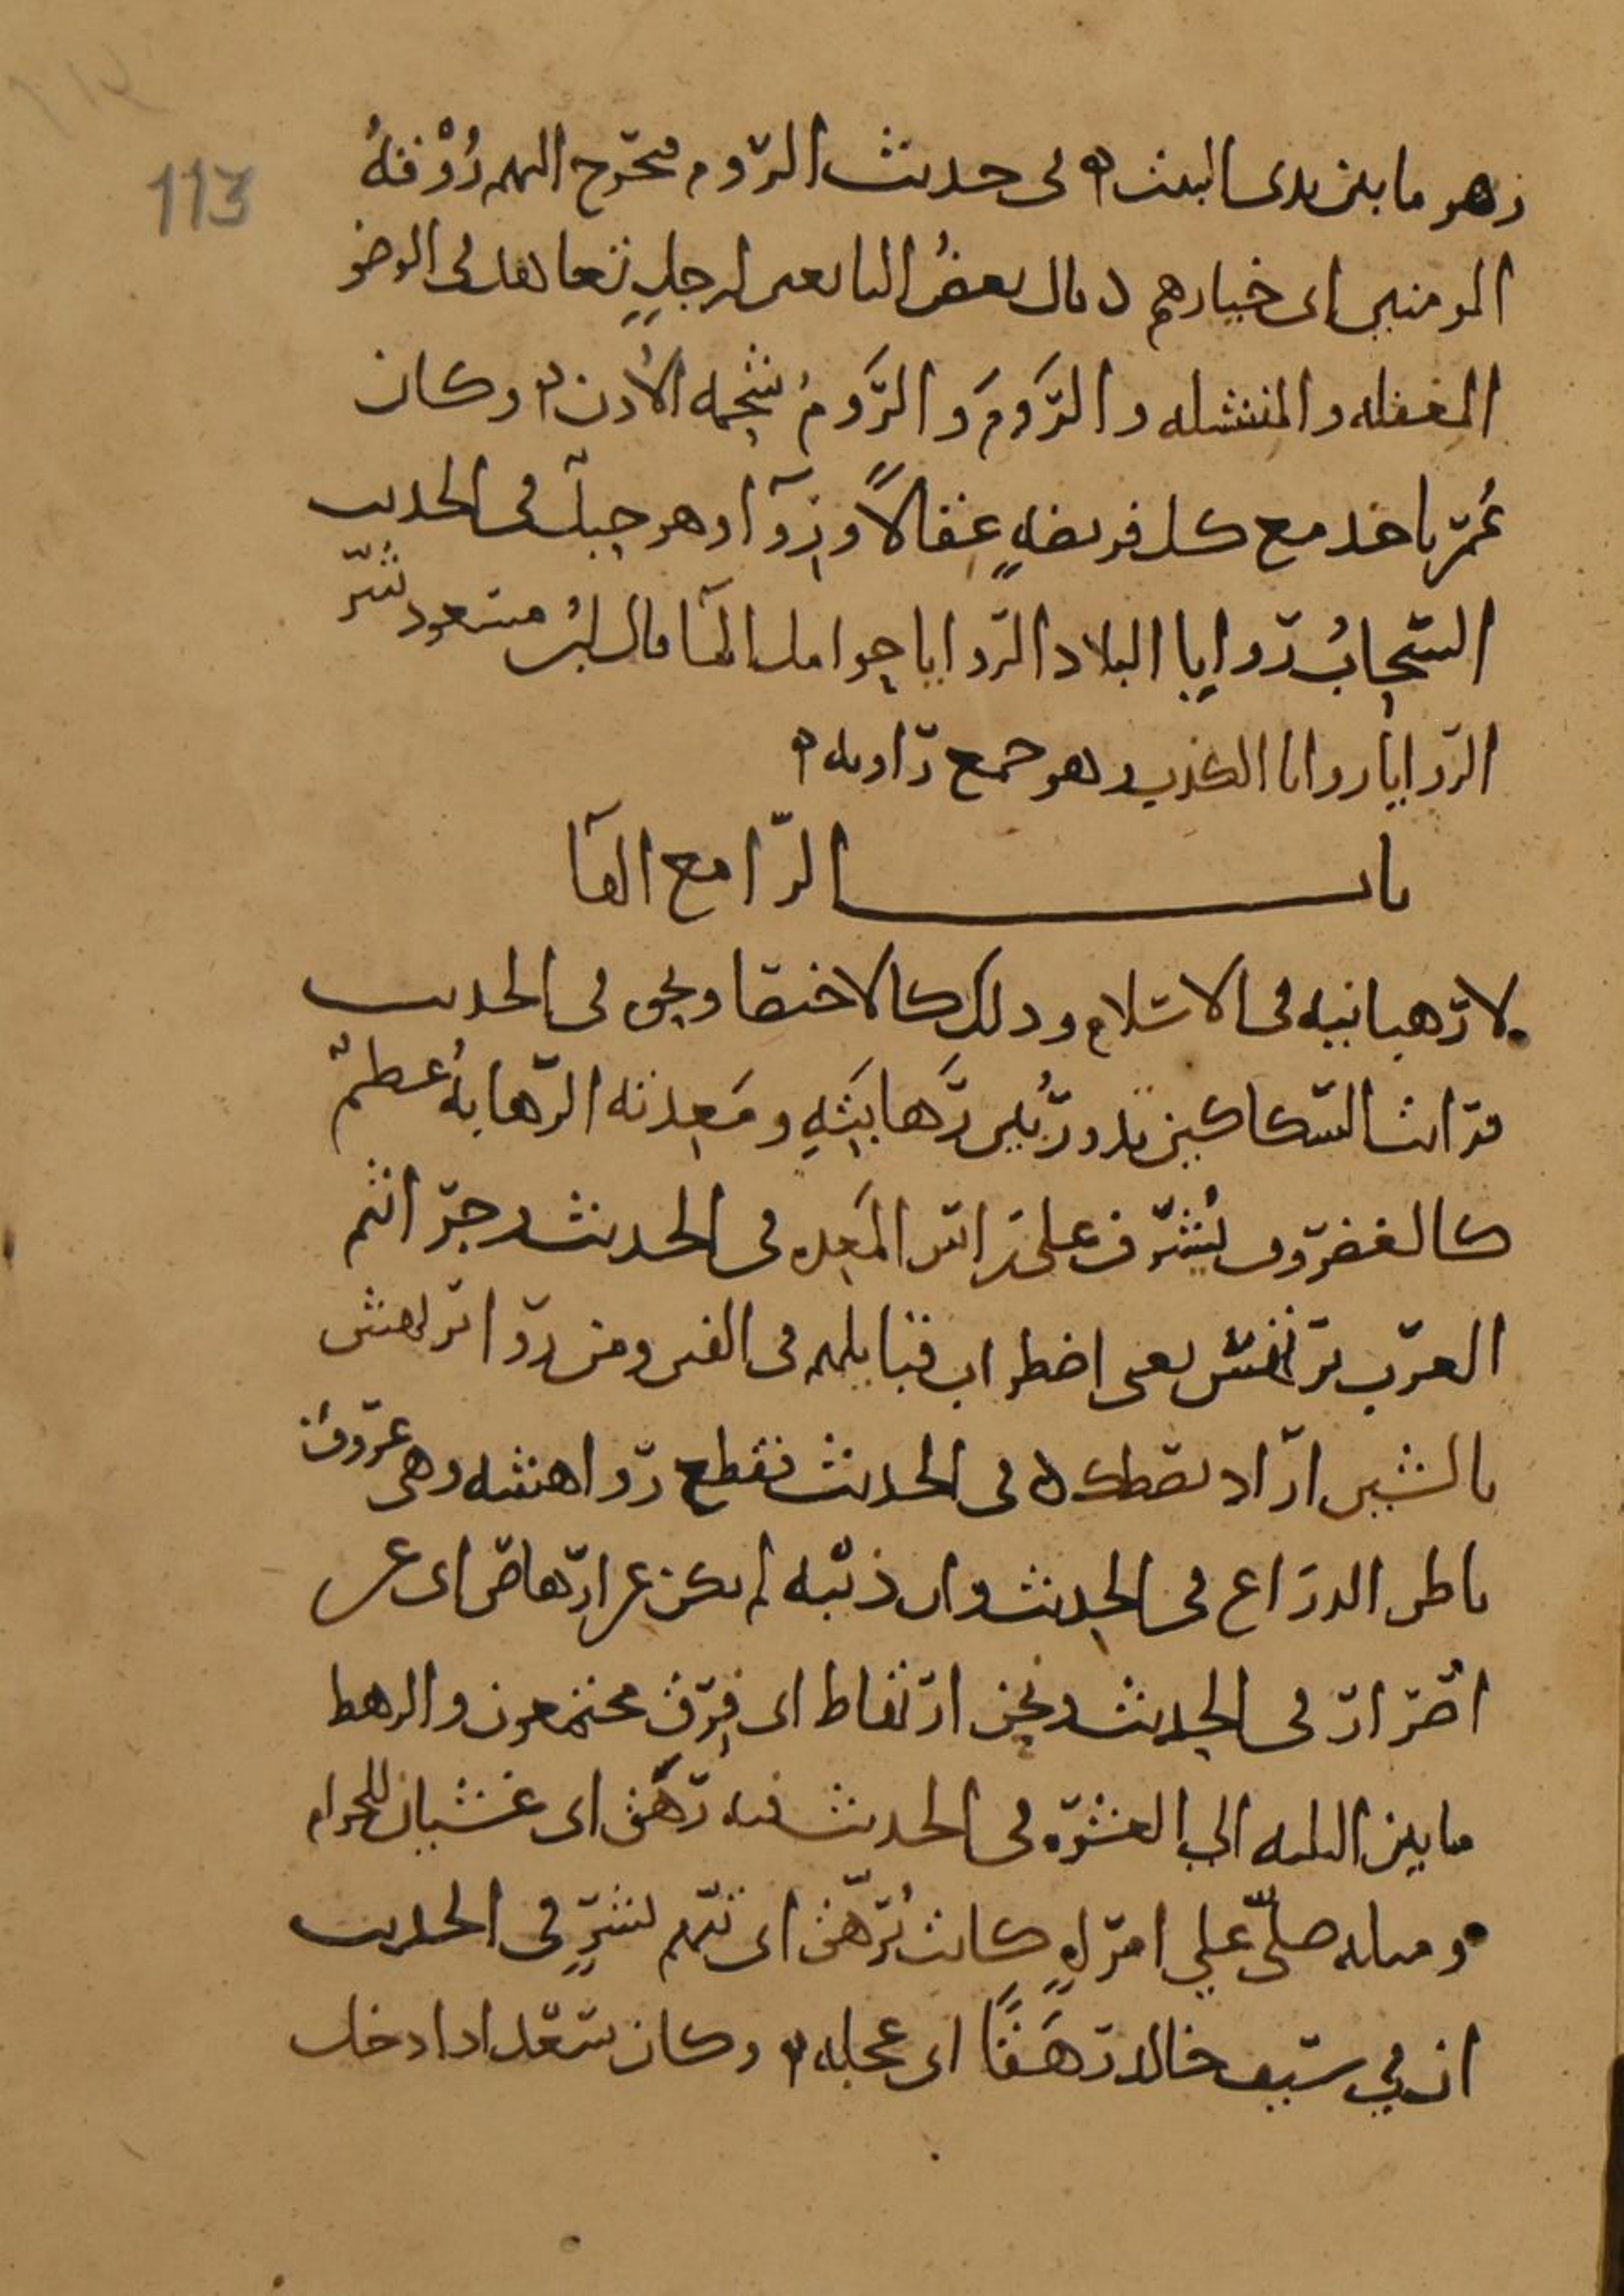 113
وهو ما بين يدى البيت ه فى حديث الروم فيخرج اليهم رُوْقَةُ
المومنين اى خيارهم د قال بعضُ التابعين لرجلٍ تعاهد فى الوضو
المغفله والمنشله والرَّومَ والرَّومُ شحمه الأذن ه وكان
عُمَر ياخد مع كل فريضهٍ عقالًا وروآ وهو حبلٌ فى الحديث
السّحابُ روايا البلاد الروايا حوامل المآ قال ابنُ مسعود شرّ
الروايا روايا الكذب وهو جمع راويه ه
باب الرا مع الهآ
لا رهبانيه فى الاسلام وذلك كالاختصا ونحوه فى الحديث
فرات السكاكين تدور بين رَهابَتِهِ ومَعِدته الرهابهُ عظمٌ
كالغضروف يُشرف على راس المَعِده فى الحديث وجراثيم
العرب ترتهس يعنى اضطراب قبايلهم فى الفتن ومن رواه ترتهش
بالشين اراد تصطك ه فى الحديث فقطع رواهشه وهى عروقٌ
باطن الدراع فى الحديث وان ذنبه لم يكن عن ارهاص اى عن
اصرار فى الحديث ونحن ارتهاط اى فِرَقٌ مجتمعون والرهط
ما بين الثلثه الى العشره فى الحديث فيه رَهَق اى غشيان للمحرام
ومثله صلّى على امراهٍ كانت تُرَهَّق اى تتّهم بشرٍّ فى الحديث
ان فى سيف خالد رَهَقًا اى عجله ه وكان سعد ادا دخل